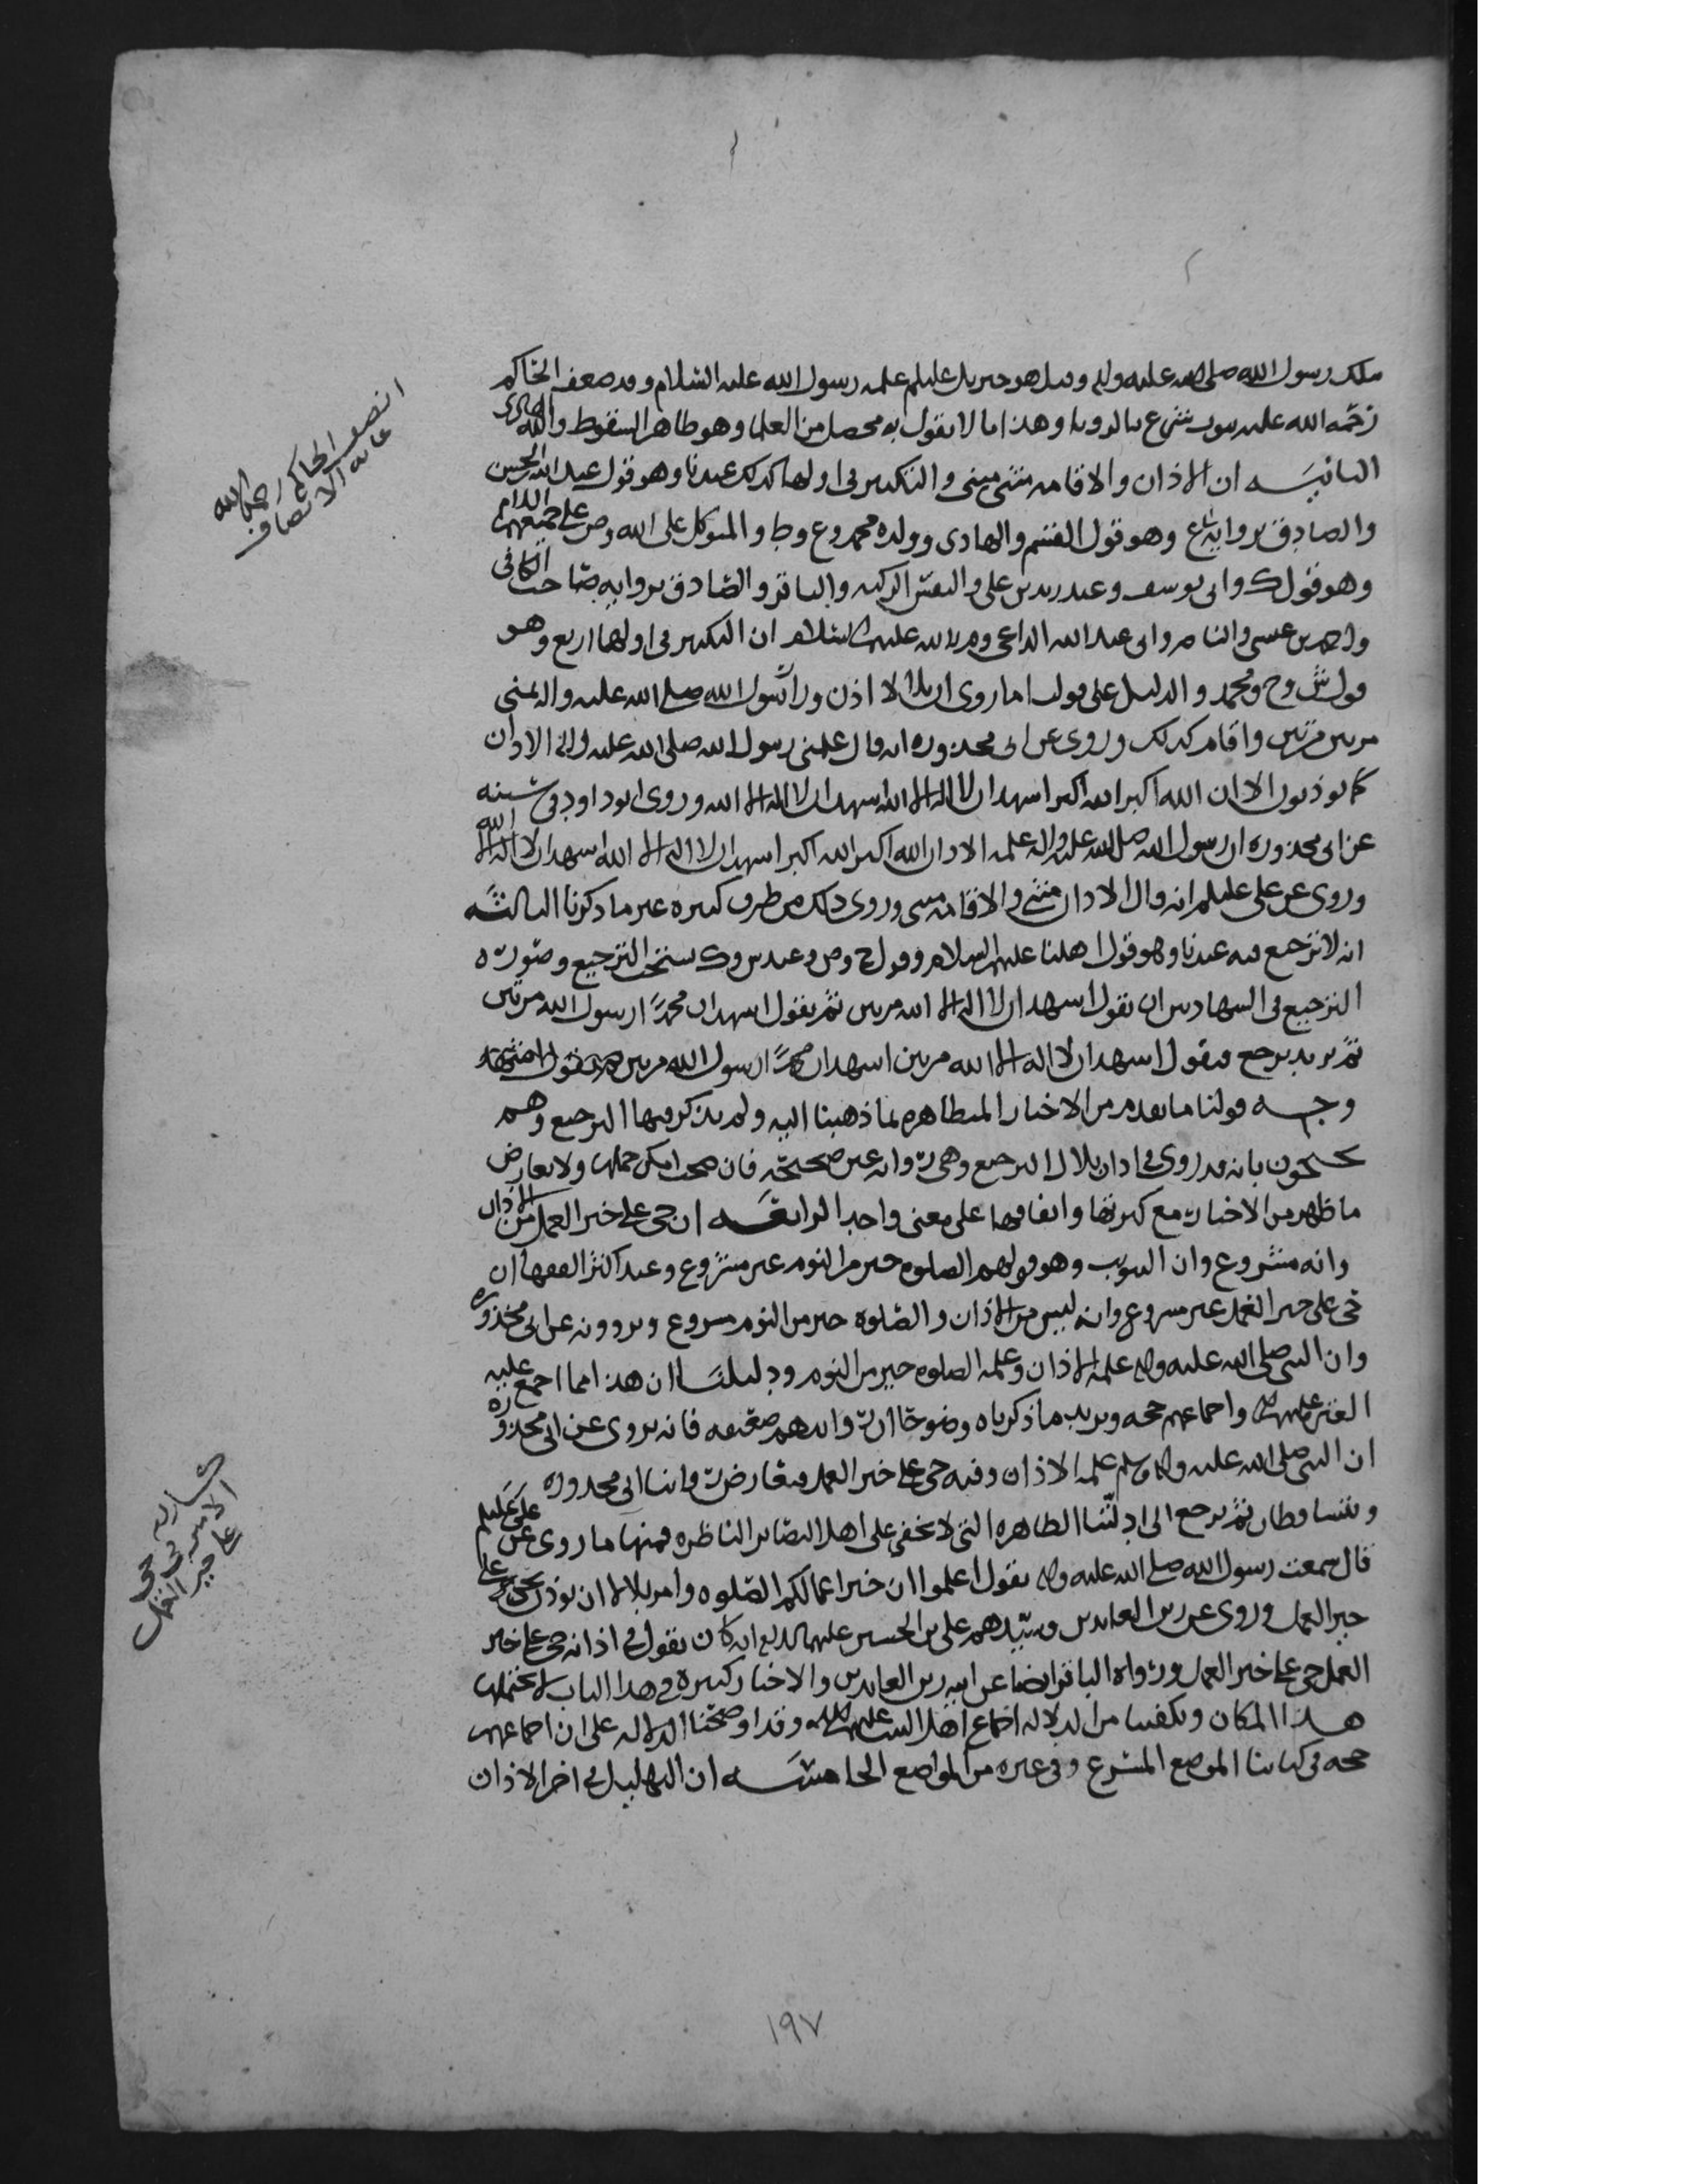 ملك رسول الله صلى الله عليه وآله وقيل هو جبريل عليلم علمه رسول الله عليه السلام وقد ضعف الحاكم
رحمه الله عليه بثوت شرع بالرويا وهذا ما لا يقول به محصل من العلما وهو ظاهر السقوط والله الهادي
الثانيـه ان الاذان والاقامه مثنى مثنى والتكبير في اولها كذلك عندنا وهو قول عبد الله الحسن
والصادق بروايه ع وهو قول القسم والهادي وولده محمد وع وط والمتوكل على الله وص على جميعهم السلام
وهو قول ك وابي يوسف وعند زيد بن علي والنفس الزكيه والباقر والصادق بروايه صاحب الكافي
واحمد بن عيسى والناصر وابي عبد الله الداعي و م بالله عليهم السلام ان التكبير في اولها اربع وهو
قول ش وح ومحمد والدليل على قولنا ما روي ان بلالا اذن ورا رسول الله صلى الله عليه واله بمنى
مرتين مرتين واقام كذلك وروي عن ابي محذوره انه قال علمني رسول الله صلى الله عليه واله الاذان
كما يوذنون الان الله اكبر الله اكبر اشهد ان لا اله الا الله اشهد ان لا اله الا الله وروى ابو داود في سننه
عن ابي محذوره ان رسول الله صلى الله عليه واله علمه الاذان الله اكبر الله اكبر اشهد ان لا اله الا الله اشهد ان لا اله الا الله
وروي عن علي عليلم انه قال الاذان مثنى والاقامه مثنى وروي ذلك من طرق كثيره غير ما ذكرنا الثالثـه
انه لا ترجيع فيه عندنا وهو قول اهلنا عليهم السلام وقول ح وص وعند س و ك يستحب الترجيع وصوره
الترجيع في الشهادتين ان يقول اشهد ان لا اله الا الله مرتين ثم يقول اشهد ان محمدا رسول الله مرتين
ثم يرجع فيقول اشهد ان لا اله الا الله مرتين اشهد ان محمدا رسول الله مرتين
وجـه قولنا ما تقدم من الاخبار المتظاهره لما ذهبنا اليه ولم يذكر فيها الترجيع وهم
يحتجون بانه قد روي في اذان بلال الترجيع وهي روايه غير صحيحه فان صحت امكن حملها ولا يعارض
ما ظهر من الاخبار مع كثرتها واتفاقها على معنى واحد الرابعـه ان حي على خير العمل من الاذان
وانه مشروع وان التثويب وهو قولهم الصلوه خير من النوم غير مشروع وعند اكثر الفقها ان
حي على خير العمل غير مشروع وانه ليس من الاذان والصلوه خير من النوم مشروع ويروونه عن ابي محذوره
وان النبي صلى الله عليه واله علمه الاذان وعلمه الصلوه خير من النوم ودليلنا ان هذا مما اجمع عليه
العتره عليهم السلام واجماعهم حجه ويزيد ما ذكرناه وضوحا ان روايتهم ضعيفه فانه يروى عن ابي محذوره
ان النبي صلى الله عليه واله وسلم علمه الاذان وفيه حي على خير العمل فتعارض روايتا ابي محذوره
ويتساقطان ثم يرجع الى ادلتنا الظاهره التي لا تخفى على اهل البصائر الناظره فمنها ما روي عن علي عليلم
قال سمعت رسول الله صلى الله عليه واله يقول اعلموا ان خير اعمالكم الصلوه وامر بلالا ان يوذن بحي على
خير العمل وروي عن زين العابدين وسيدهم علي بن الحسين عليهما السلام انه كان يقول في اذانه حي على خير
العمل حي على خير العمل ورواه الباقر ايضا عن ابيه زين العابدين والاخبار كثيره في هذا الباب لا يحتملها
هـذا المكان ويكفينا من الدلاله اجماع اهل البيت عليهم السلام وقد اوضحنا الدلاله على ان اجماعهم
حجه في كتابنا الموضع المشرع وفي غيره من المواضع الخامسـه ان التهليل في اخر الاذان
انصف الحاكم رحمه الله
غايه الانصاف
الامير في حي
على خير العمل
١٩٧